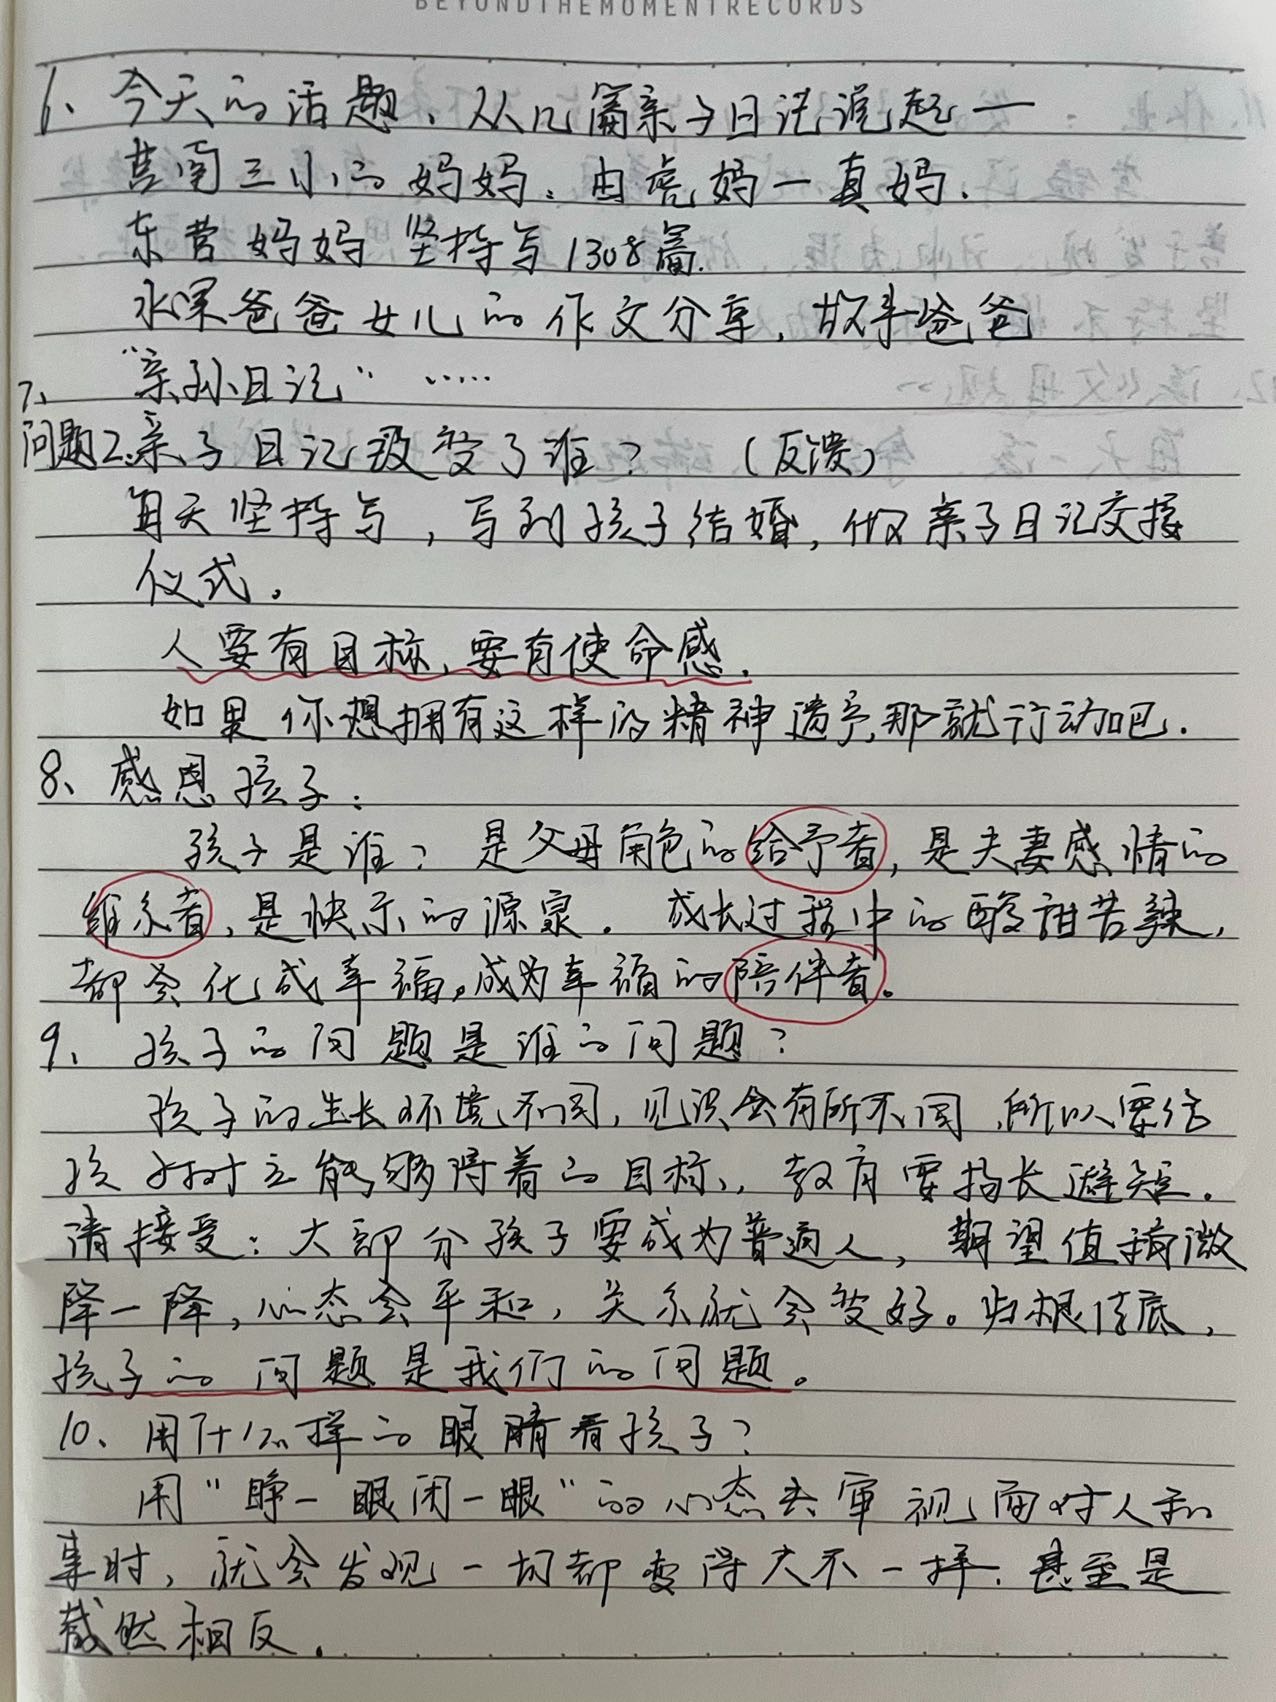 BEYONDTHEMOMENTRECORDS
6、今天的话题、从几篇亲子日记说起一
莒南三小的妈妈:由虎妈一真妈.
东营妈妈坚持写1308篇.
水果爸爸女儿的作文分享,故事爸爸
7、“亲孙日记”……
问题2.亲子日记改变了谁?(反馈)
每天坚持写,写到孩子结婚,做亲子日记交接
仪式。
人要有目标,要有使命感.
如果你想拥有这样的精神遗予,那就行动吧.
8、感恩孩子:
孩子是谁?是父母角色的给予者,是夫妻感情的
维系者,是快乐的源泉。成长过程中的酸甜苦辣,
都会化成幸福,成为幸福的陪伴者。
9、孩子的问题是谁的问题?
孩子的生长环境不同,见识会有所不同,所以要给
孩子树立能够得着的目标,教育要扬长避短.
请接受:大部分孩子要成为普通人,期望值稍微
降一降,心态会平和,关系就会变好。归根结底,
孩子的问题是我们的问题。
10、用什么样的眼睛看孩子?
用“睁一眼闭一眼”的心态去审视面对人和
事时,就会发现一切都变得大不一样.甚至是
截然相反.